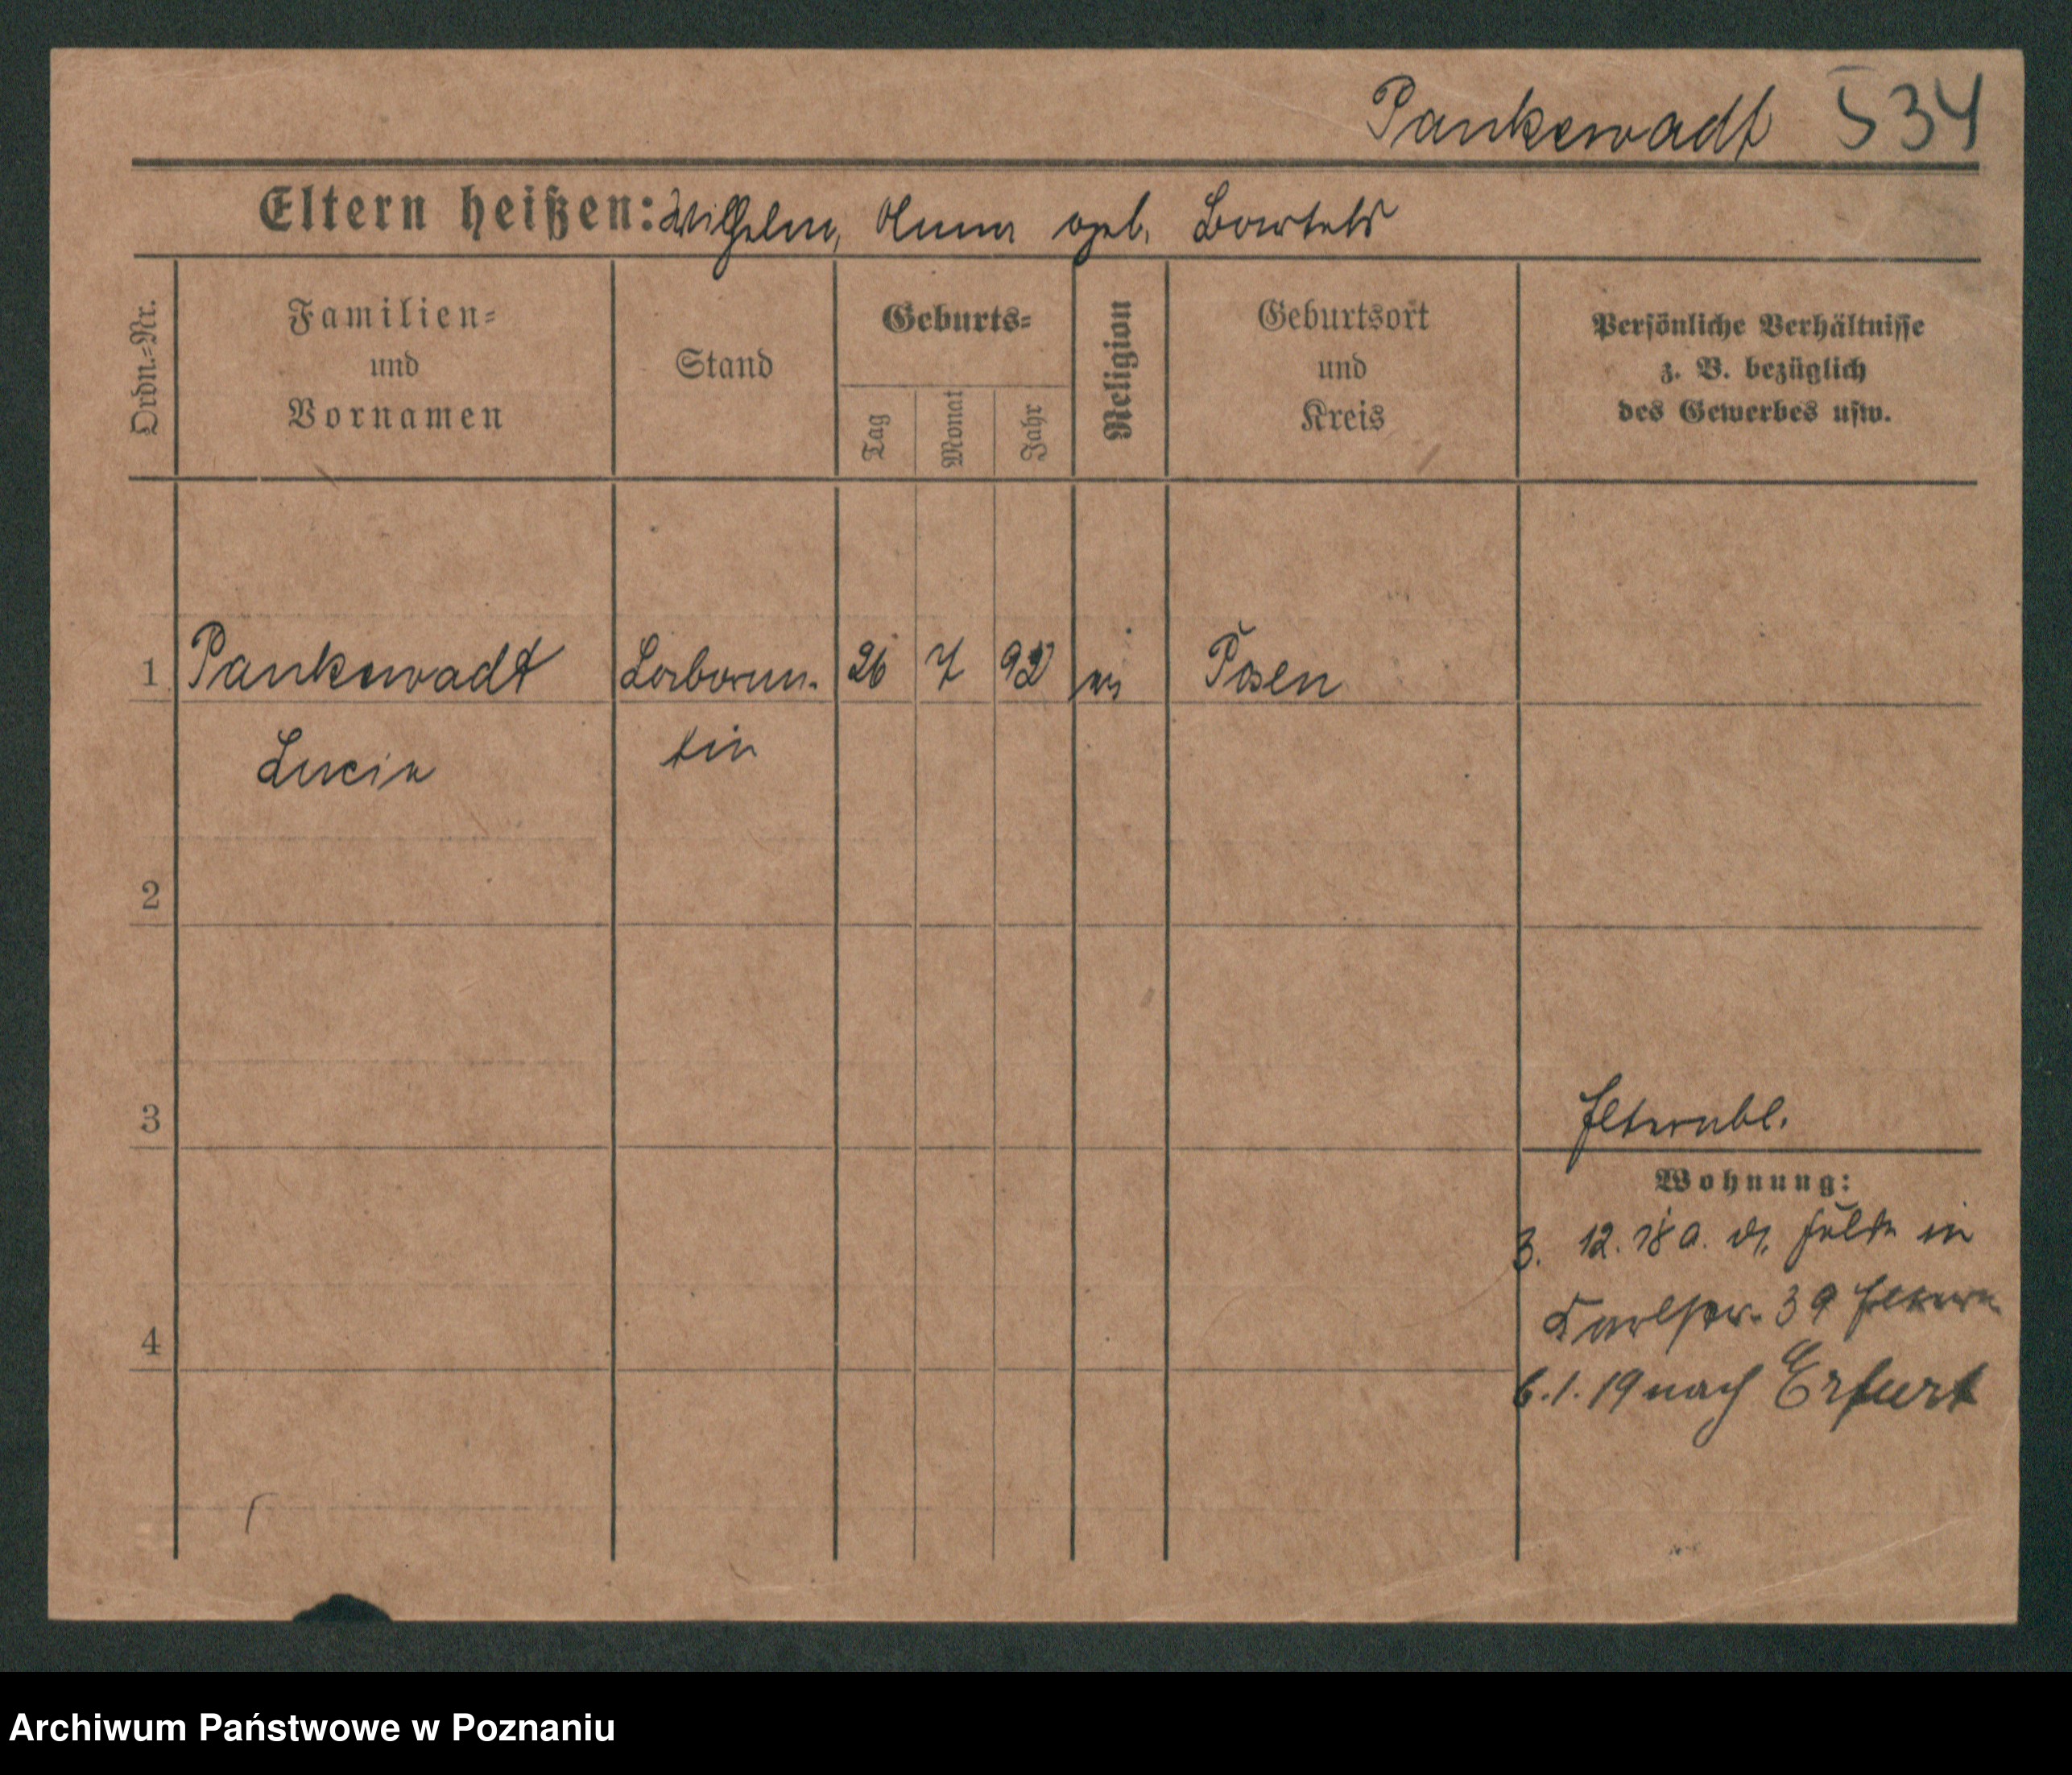 Pankewadt 534
Eltern heißen: Wilhelm, Anna geb. Bartels
Ordn.=Nr.
Familien=
und
Vornamen
Stand
Geburts=
Tag
Monat
Jahr
Religion
Geburtsort
und
Kreis
Persönliche Verhältnisse
z. B. bezüglich
des Gewerbes usw.
1 Pankewadt Laboran- 26 7 92 Posen
Lucia tin
2
3
Elternbl.
Wohnung:
3. 12. 18 a. d. in
4
Karlstr. 39 Eltern
6.1.19 nach Erfurt
Archiwum Państwowe w Poznaniu